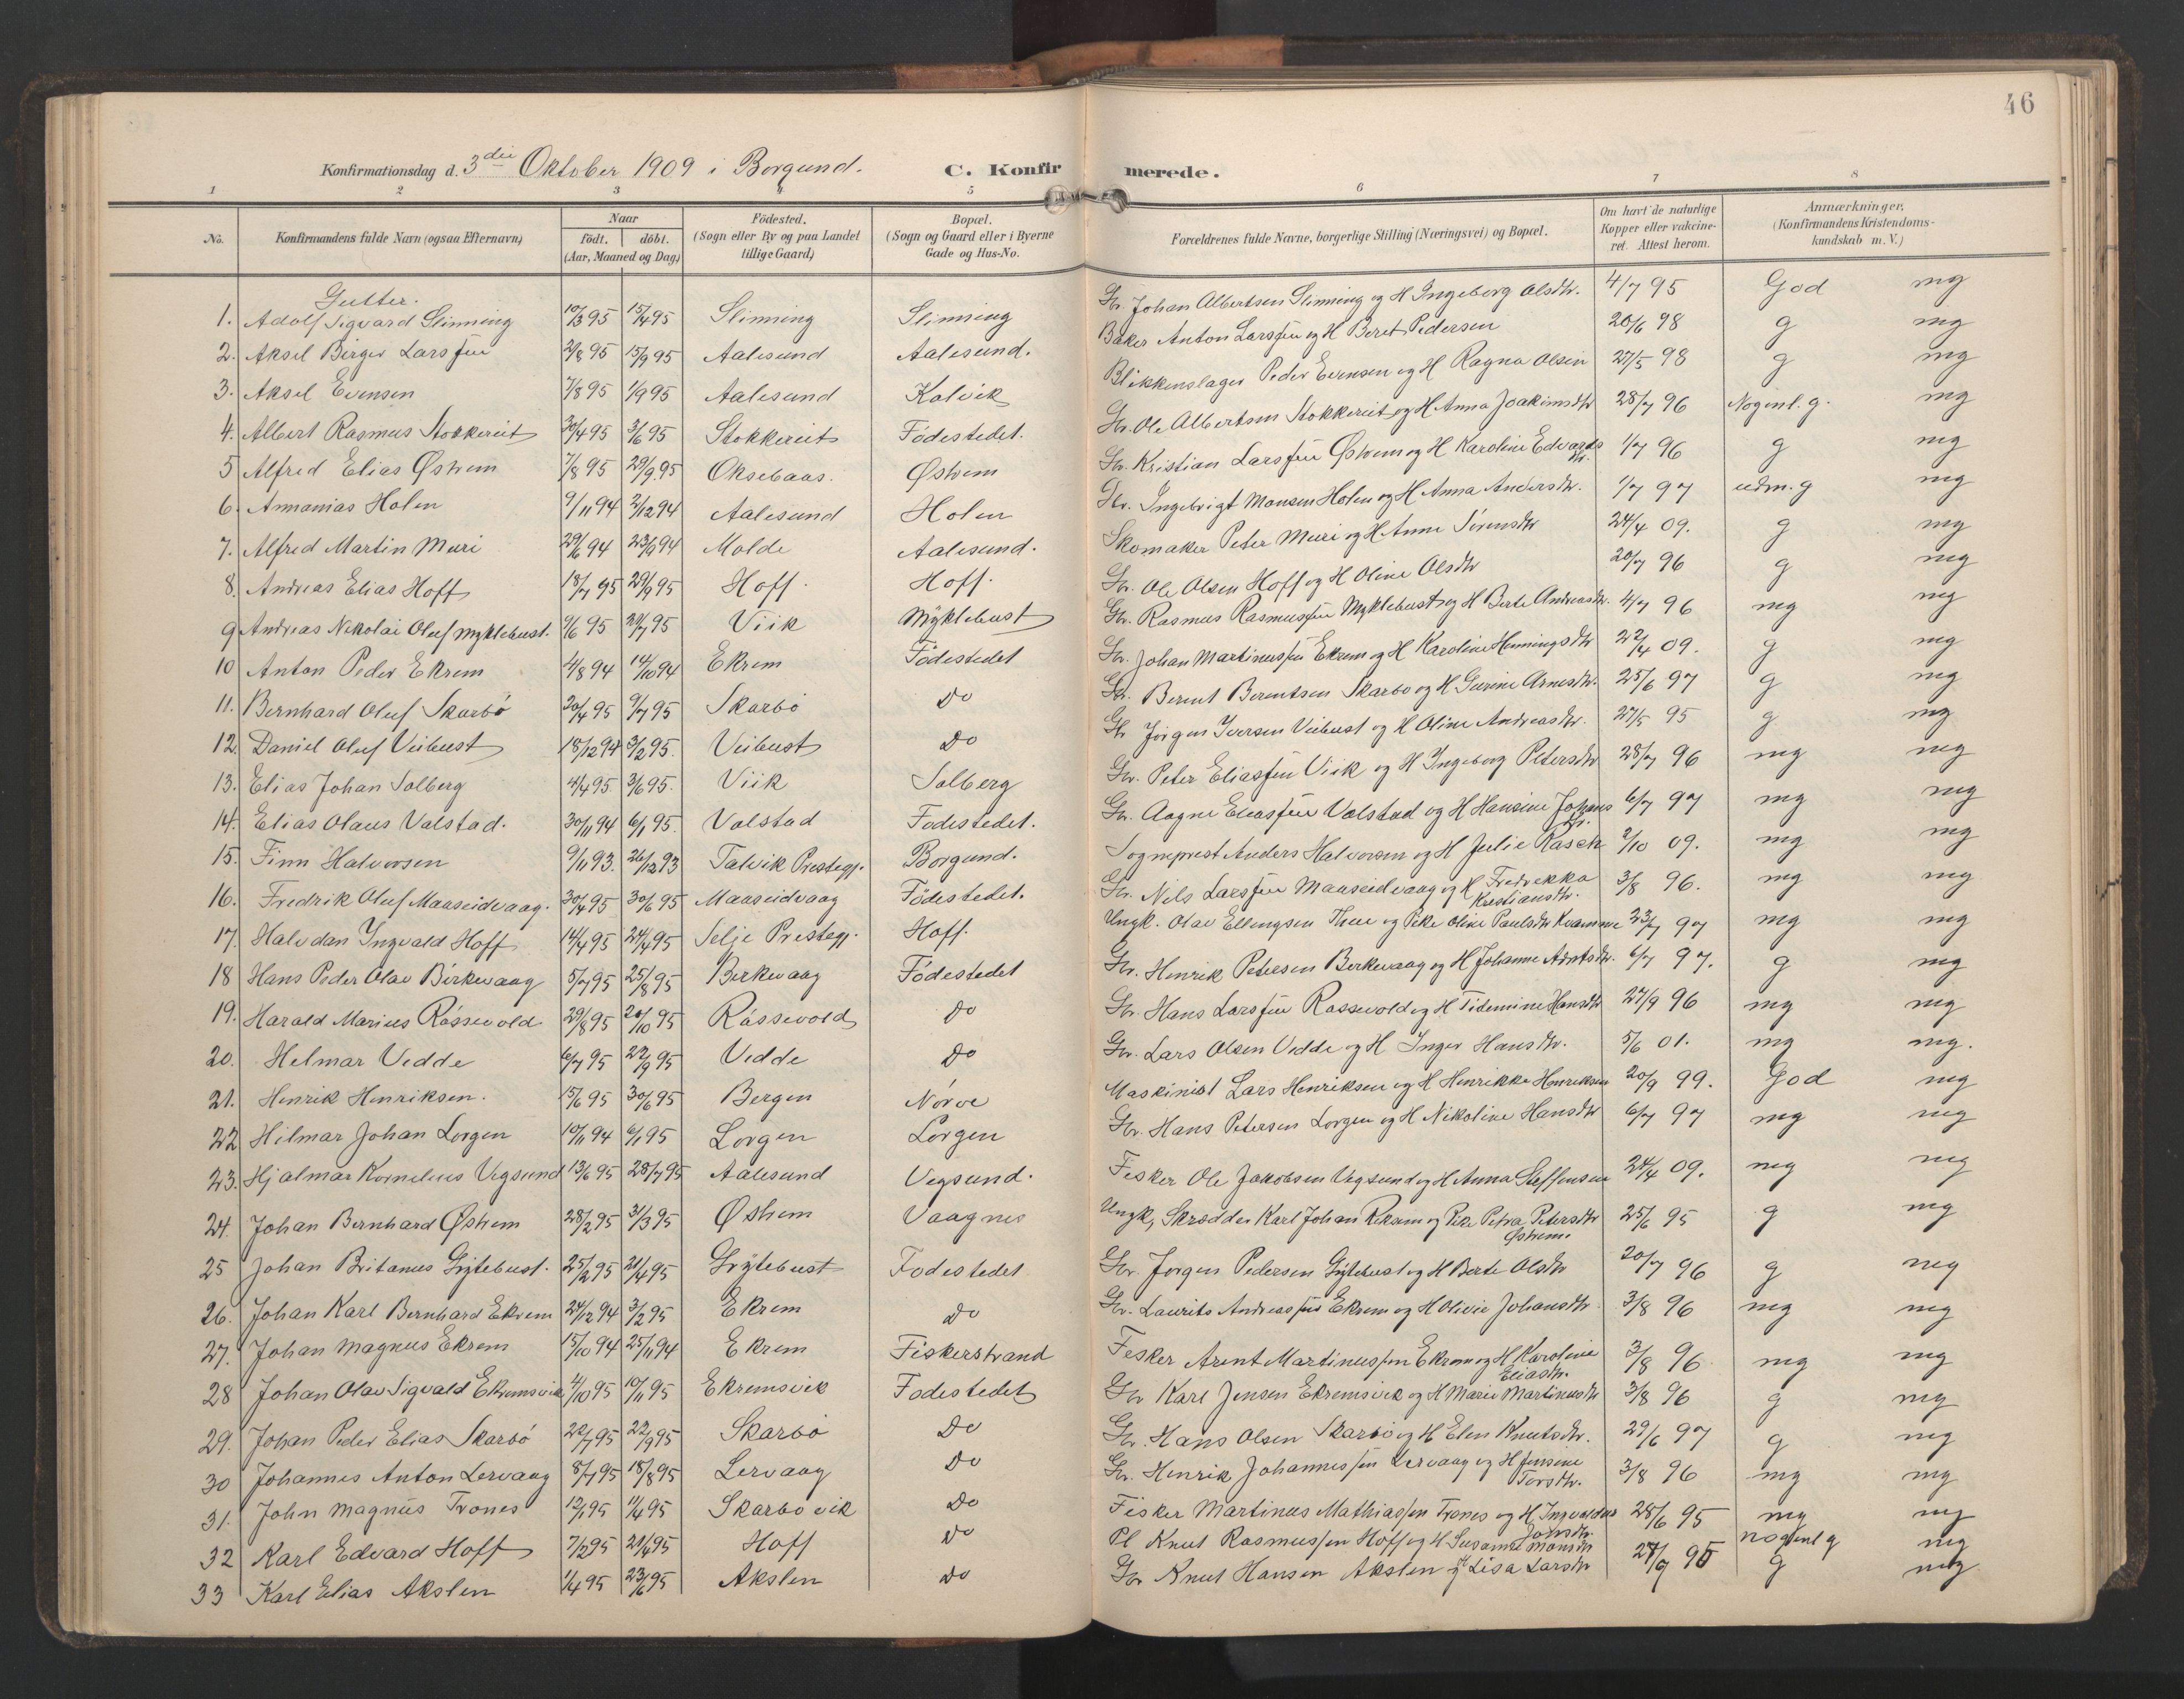 46
Konfirmationsdag d. 3die Oktober 1909 i Borgund. C. Konfirmerede.
1 2 3 4 5 6 7 8
No. Konfirmandens fulde Navn (ogsaa Efternavn) Naar født. døbt. (Aar, Maaned og Dag) Födested. (Sogn eller By og paa Landet tillige Gaard) Bopæl. (Sogn og Gaard eller i Byerne Gade og Hus-No. Forældrenes fulde Navne, borgerlige Stilling (Næringsvei) og Bopæl. Om havt de naturlige Kopper eller vakcineret. Attest herom. Anmærkninger. (Konfirmandens Kristendomskundskab m.V.)
Gutter.
1. Adolf Sigvard Slinning 10/3 95 15/4 95 Slinning Slinning Gbr. Johan Albertsen Slinning og H Ingeborg Olsdtr. 4/7 95 God mg
2. Aksel Birger Larssen 2/8 95 15/9 95 Aalesund Aalesund. Baker Anton Larssen og H Beret Pedersen 20/6 98 g mg
3. Aksel Evensen 7/8 95 1/9 95 Aalesund Kalvik Blikkenslager Peder Evensen og H Ragna Olsen 27/5 98 g mg
4. Albert Rasmus Stokkereit 30/4 95 3/6 95 Stokkereit Födestedet. Gbr. Ole Albertsen Stokkereit og H Anna Joakimsdtr 28/7 96 Nogenl. g. mg
5 Alfred Elias Østrem 7/8 95 29/9 95 Oksebaas. Østrem Gbr. Kristian Larssen Østrem og H Karoline Edvardsdtr. 1/7 96 g mg
6. Annanias Holen 9/11 94 2/12 94 Aalesund Holen Gbr. Ingebrigt Monsen Holen og H Anna Andersdtr. 1/7 97 udm. g mg
7. Alfred Martin Muri 29/6 94 23/9 94 Molde Aalesund. Skomaker Peter Muri og H Anne Sörensdtr 24/4 09. g mg
8. Andreas Elias Hoff 18/7 95 29/9 95 Hoff. Hoff. Gbr. Ole Olsen Hoff og H Oline Olsdtr 20/7 96 g mg
9 Andreas Nikolai Oluf Myklebust. 9/6 95 21/7 95 Viik Myklebust Gbr. Rasmus Rasmussen Myklebust og H Berte Andreasdtr. 4/7 96 mg mg
10 Anton Peder Ekrem 4/8 94 14/10 94 Ekrem Födestedet Gbr. Johan Martinussen Ekrem og H Karoline Hemingsdtr 22/4 09. g mg
11. Bernhard Oluf Skarbö 20/4 95 9/7 95 Skarbö Do Gbr. Bernt Berentsen Skarbo og H Gurine Arnesdtr. 25/6 97 g mg
12. Daniel Oluf Veibust 18/12 94 3/2 95. Veibust Do Gbr Jörgen Iversen Veibust og H Oline Andreasdtr. 27/5 95 g mg
13. Elias Johan Solberg 4/4 95 3/6 95. Viik Solberg Gbr. Peter Eliassen Viik og H Ingeborg Petersdtr 28/7 96 mg mg
14. Elias Olaus Valstad. 30/11 94 6/1 95. Valstad Fodestedet. Gbr. Aagne Eliassen Valstad og H Hansine Johansdtr. 6/7 97 mg mg
15. Finn Halvorsen 9/11 93. 26/12 93 Talvik Prestegj. Borgund. Sogneprest Anders Halvorsen og H Julie Rasch 2/10 09. mg mg
16. Fredrik Oluf Maaseidvaag. 30/4 95 30/6 95 Maaseidvaag Födestedet. Gbr. Nils Larssen Maaseidvaag og H Fredrekka Kristiansdtr. 3/8 96. mg mg
17. Halvdan Ingvald Hoff 14/4 95 24/4 95 Selje Prestegj. Hoff. Ungk. Olav Ellingsen Thue og Pike Oline Paulsdtr Kvamme 23/7 97 mg mg
18 Hans Peder Olav Birkevaag 5/7 95 25/8 95 Birkevaag Födestedet Gbr. Henrik Petersen Berkevaag og H Johanne Arntsdtr. 6/7 97. g mg
19. Harald Marius Rössevold 29/8 95 20/10 95 Rössevold Do Gbr. Hans Larssen Rossevold og H Tidemine Hansdtr 27/9 96 mg mg
20. Helmar Vedde 6/7 95 22/9 95 Vedde Do Gbr. Lars Olsen Vedde og H Inger Hansdtr. 5/6 01. mg mg.
21. Henrik Henriksen. 15/6 95 30/6 95 Bergen Nörve Maskinist Lars Henriksen og H Henrikke Henriksen 20/9 99. God mg
22 Hilmar Johan Lorgen 10/11 94 6/1 95 Lorgen Lorgen Gbr. Hans Petersen Lorgen og H Nikoline Hansdtr 6/7 97 mg mg
23. Hjalmar Kornelius Vegsund 13/6 95 28/7 95 Aalesund Vegsund. Fisker Ole Jakobsen Vegsund og H Anna Steffensen 24/4 09. mg mg
24. Johan Bernhard Østrem 28/2 95 31/3 95 Østrem Vaagnes Ungk, Skrædder Karl Johan Rekam og Pike Petra Petersdtr Østrem. 25/6 95 g mg
25 Johan Britanus Grytebust. 25/2 95 21/4 95 Grytebust Fodestedet Gbr. Jorgen Pedersen Grytebust og H Berte Olsdtr 20/7 96 g mg
26. Johan Karl Bernhard Ekrem 24/12 94 3/2 95. Ekrem Do Gbr. Laurits Andreassen Ekrem og H Olivie Johansdtr. 3/8 96 mg mg
27. Johan Magnus Ekrem 15/10 94 25/11 94 Ekrem Fiskerstrand Fisker Arent Martinussen Ekrem og H Karoline Eliasdtr. 3/8 96 mg mg
28 Johan Olav Sigvald Ekremsvik 4/10 95 10/11 95 Ekremsvik Fodestedet Gbr Karl Jensen Ekremsvik og H Marie Martinusdtr 3/8 96 g mg
29. Johan Peder Elias Skarbö 22/7 95 22/9 95 Skarbö Do Gbr. Hans Olsen Skarbö og H Elen Knutsdtr. 29/6 97 g mg
30 Johannes Anton Lervaag 8/7 95 18/8 95 Lervaag Do Gbr. Henrik Johannessen Lervaag og H Jensine Torsdtr. 3/8 96 mg mg
31. John Magnus Trones 12/1 95 11/4 95 Skarbövik Do Fisker Martinus Mathiassen Trones og H Ingvalda Johsdtr. 28/6 95 mg mg
32 Karl Edvard Hoff 7/2 95 21/4 95 Hoff Do Pl Knut Rasmussen Hoff og H Susanne Monsdtr nogenl g mg
33 Karl Elias Akslen 1/4 95 23/6 95 Akslen Do Gbr Knut Hansen Akslen og H Lisa Larsdtr 27/9 95 g mg